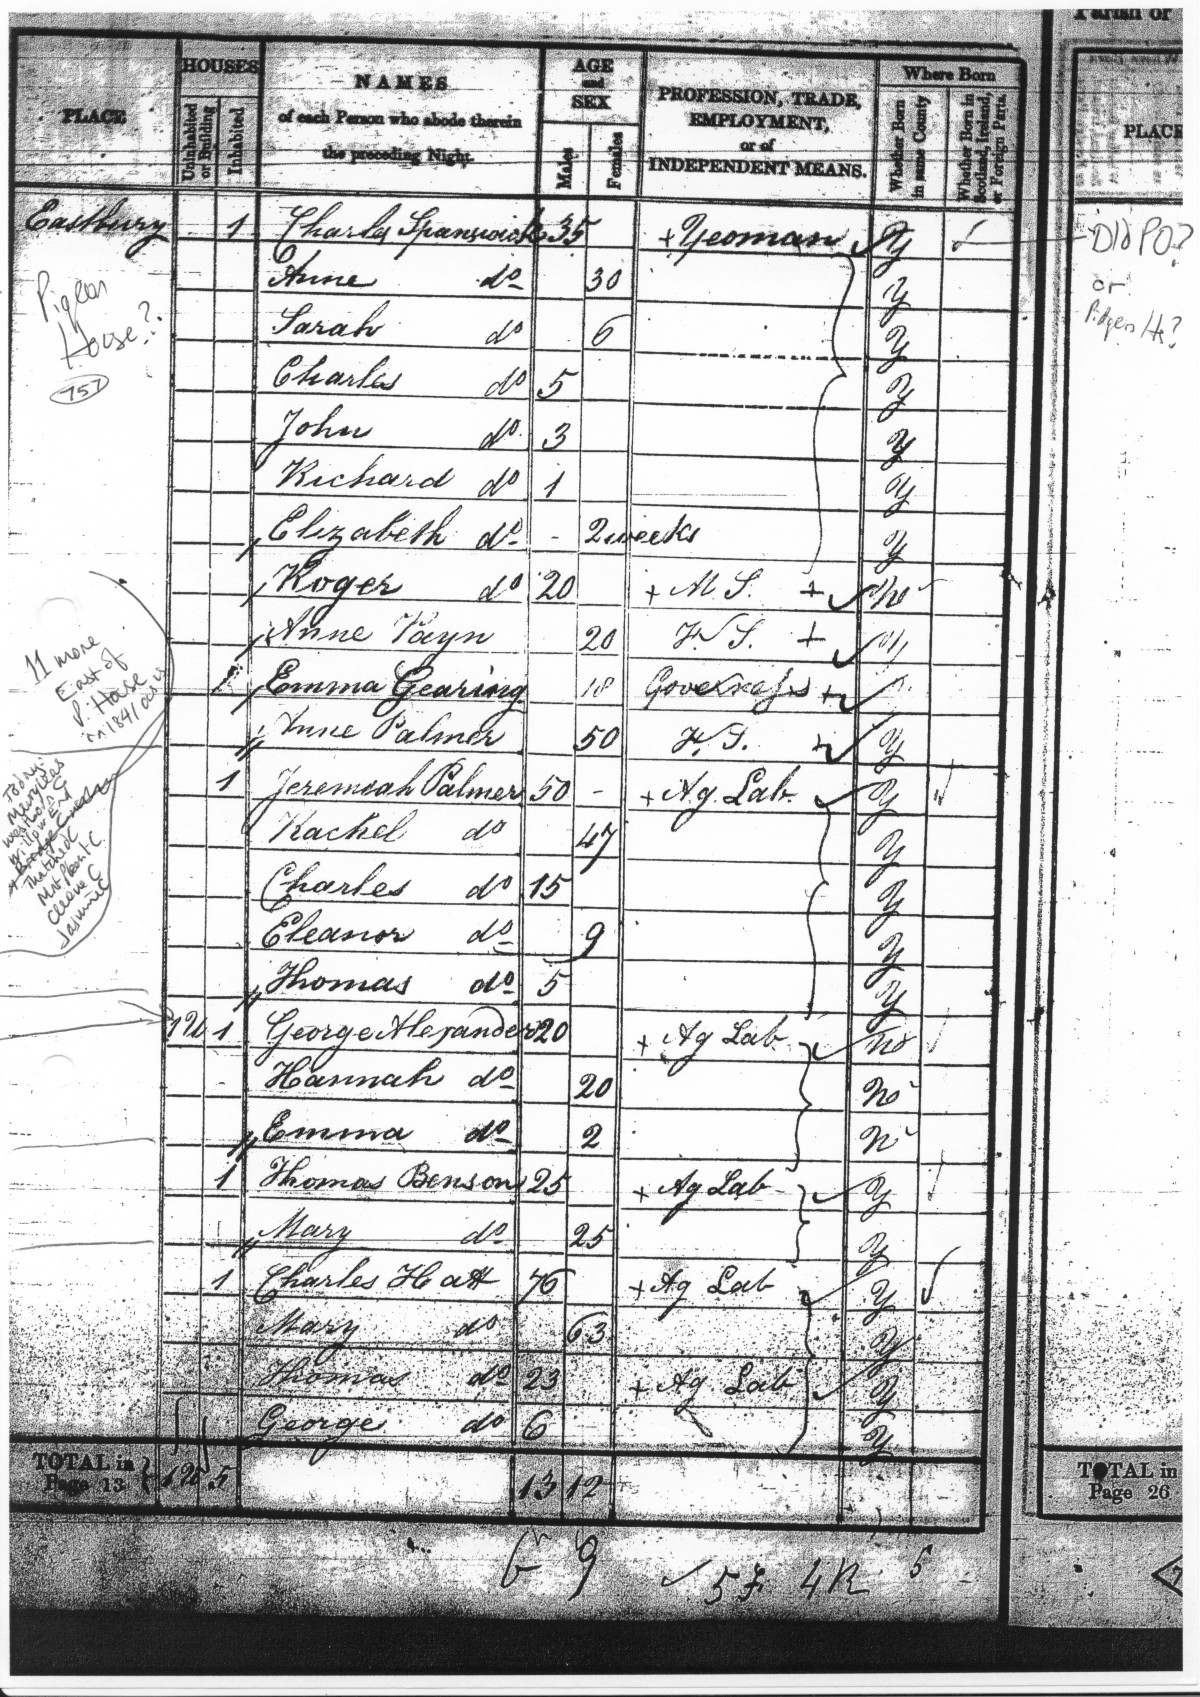 Parish or
PLACE
HOUSES
Uninhabited or Building
Inhabited
NAMES
of each Person who abode therein
the preceding Night.
AGE
and
SEX
Males
Females
PROFESSION, TRADE,
EMPLOYMENT,
or of
INDEPENDENT MEANS.
Where Born
Whether Born in same County
Whether Born in Scotland, Ireland, or Foreign Parts.
PLACE
Eastbury 1 Charles Spanswick 35 + Yeoman Y
Old PO?
or
Pidgeon Hs?
Anne do 30 Y
Pigeon
House?
Sarah do 6 Y
Charles do 5 Y
John do 3 Y
Richard do 1 Y
Elizabeth do - 2 weeks Y
Roger do 20 + M.S. + No
Anne Vayn 20 F.S. +
Emma Gearing 18 Governess +
Anne Palmer 50 F.S. + Y
11 more
East of
P. House
in 1841
1 Jeremiah Palmer 50 - + Ag Lab. Y
Rachel do 47 Y
Charles do 15 Y
Eleanor do 9 Y
Thomas do 5 Y
Today:
Thatched C
Jasmine C
1 George Alexander 20 + Ag Lab No
Hannah do 20 No
Emma do 2 N
1 Thomas Benson 25 + Ag Lab Y
Mary do 25 Y
1 Charles Hatt 76 + Ag Lab Y
Mary do 63 Y
Thomas do 23 + Ag. Lab Y
George do 6 Y
TOTAL in
Page 13 5 13 12
TOTAL in
Page 26
6 9 5 F 4 R 5